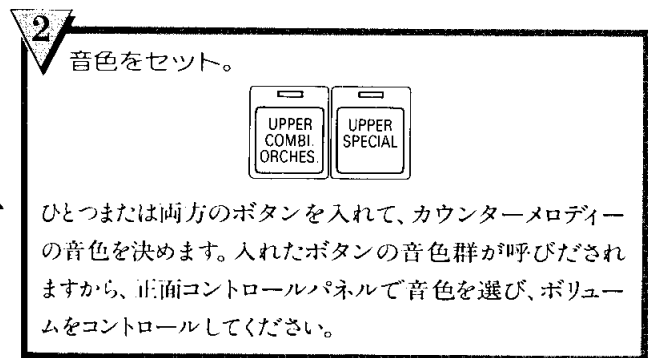 2
音色をセット。
UPPER
COMBI.
ORCHES.
UPPER
SPECIAL
ひとつまたは両方のボタンを入れて、カウンターメロディー
の音色を決めます。入れたボタンの音色群が呼びだされ
ますから、正面コントロールパネルで音色を選び、ボリュー
ムをコントロールしてください。